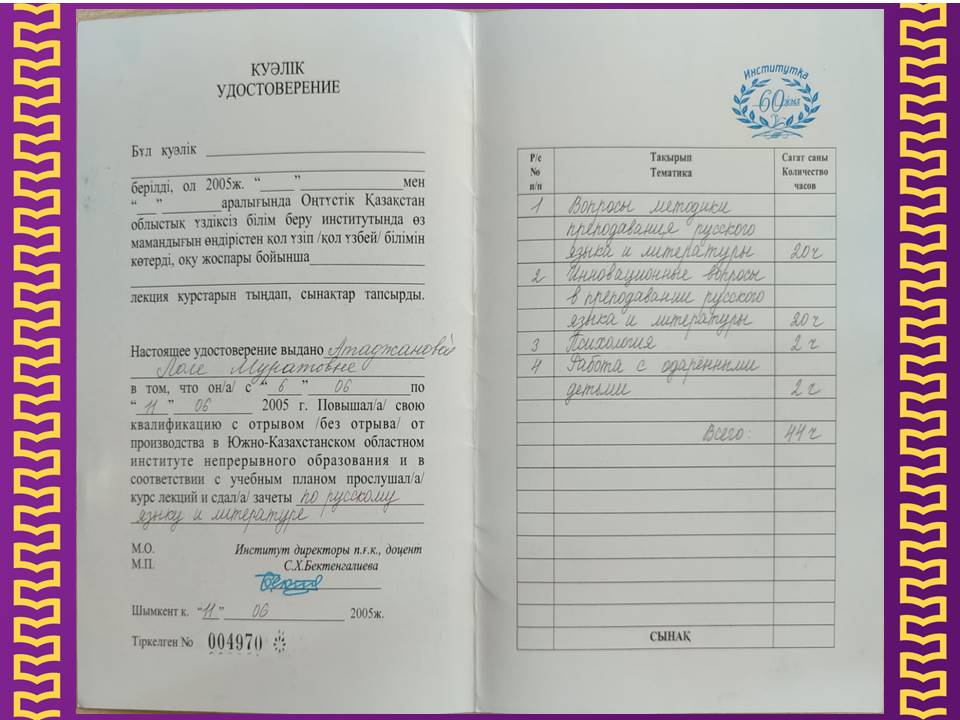 КУӘЛІК
УДОСТОВЕРЕНИЕ
Бұл куәлік
берілді, ол 2005ж. “ ” мен
“ ” аралығында Оңтүстік Қазақстан
облыстық үздіксіз білім беру институтында өз
мамандығын өндірістен қол үзіп /қол үзбей/ білімін
көтерді, оқу жоспары бойынша
лекция курстарын тыңдап, сынақтар тапсырды.
Настоящее удостоверение выдано Атаджановой
Лоле Муратовне
в том, что он/а/ с “ 6 ” 06 по
“ 11 ” 06 2005 г. Повышал/а/ свою
квалификацию с отрывом /без отрыва/ от
производства в Южно-Казахстанском областном
институте непрерывного образования и в
соответствии с учебным планом прослушал/а/
курс лекций и сдал/а/ зачеты по русскому
языку и литературе
М.О. Институт директоры п.ғ.к., доцент
М.П. С.Х.Бектенгалиева
Шымкент к. “11” 06 2005ж.
Тіркелген No 004970
Институтқа
60 жыл
Р/с No п/п Тақырып Тематика Сағат саны Количество часов
1 Вопросы методики
преподавания русского
языка и литературы 20 ч
2 Инновационные вопросы
в преподавании русского
языка и литературы 20 ч
3 Психология 2 ч
4 Работа с одарёнными
детьми 2 ч
Всего: 44 ч
СЫНАҚ